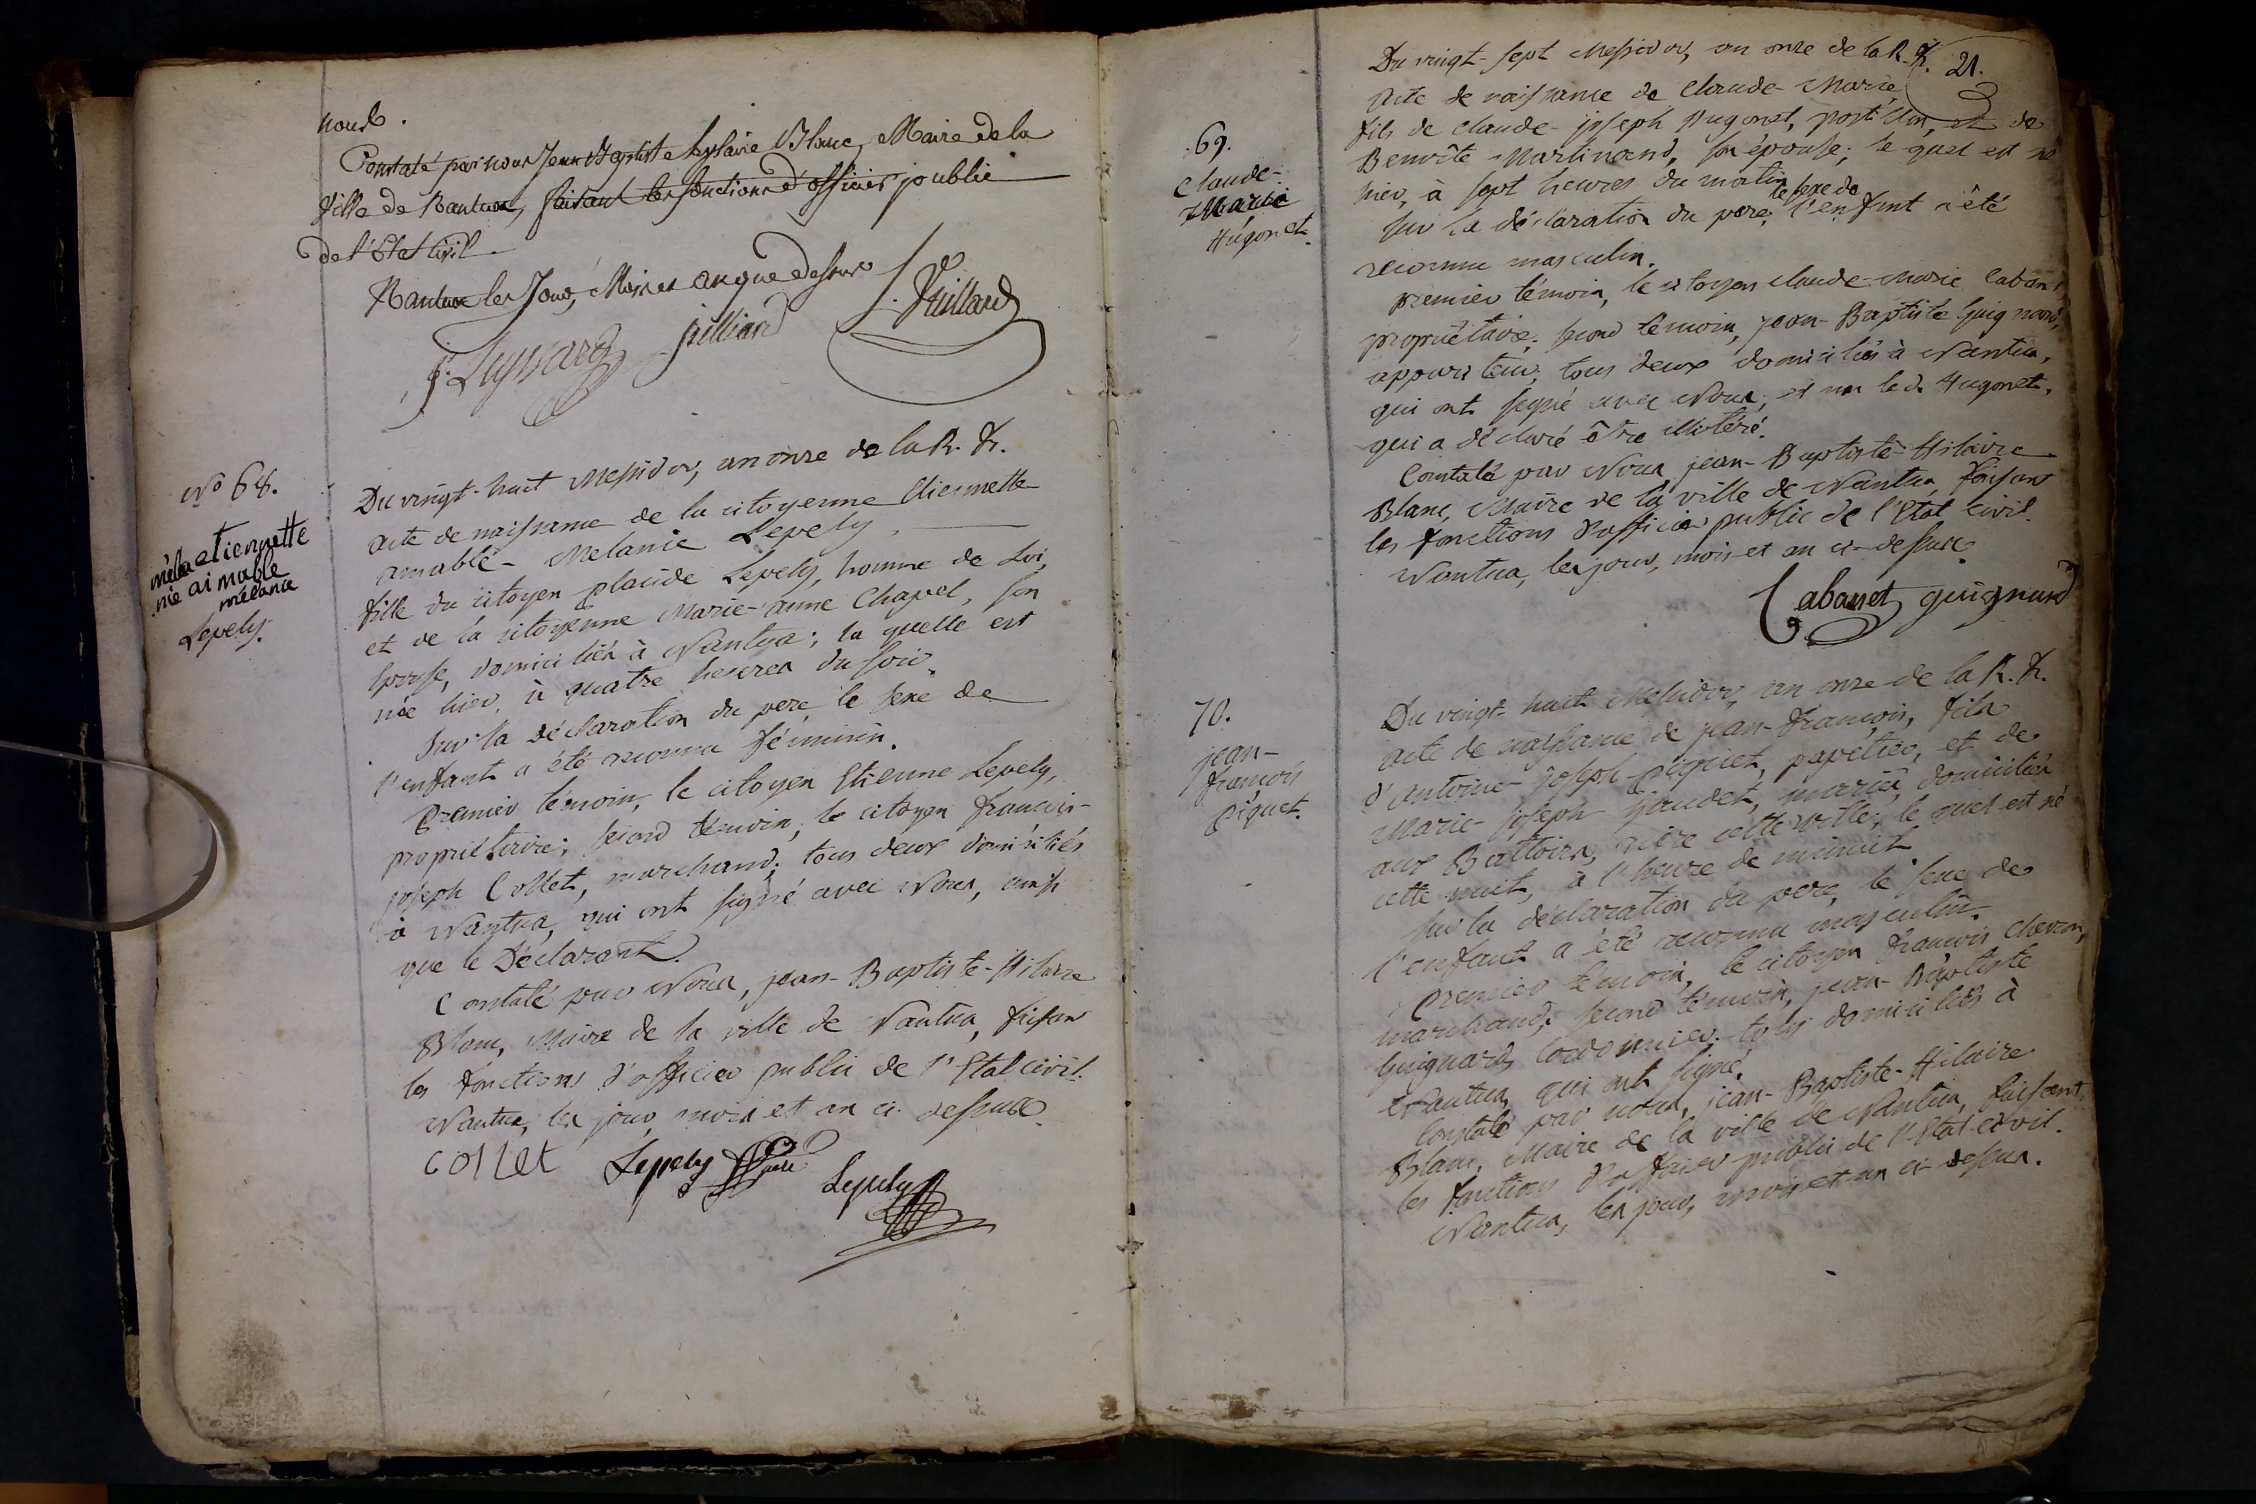 nous.
Constaté par nous Jean Baptiste hylaire Blanc, Maire de la
Ville de Nantua, faisant les fonctions d'officier public
de l'Etat Civil.
Nantua les Jour, Mois et an que dessus
Juilliard
J. Juillard
No 68.
etiennette
aimable
mélanie
Lepely.
Du vingt-huit Messidor, an onze de la R. F.
acte de naissance de la citoyenne Etiennette
amable - Melanie Lepely.
fille du citoyen placide Lepely, homme de Loi,
et de la citoyenne Marie-anne Chapel, son
Epouse, domiciliés à Nantua; la quelle est
née hier, à quatre heures du soir.
Sur la déclaration du pere, le sexe de
l'enfant a été reconnu féminin.
Premier témoin, le citoyen Etienne Lepely,
propriétaire; second témoin, le citoyen francois-
joseph Collet, marchand; tous deux domiciliés
à Nantua, qui ont signé avec Nous, ainsi
que le Déclarant.
Constaté par Nous, jean-Baptiste-Hilaire
Blanc, Maire de la ville de Nantua, faisant
les fonctions d'officier public de l'Etat civil.
Nantua, les jour, mois et an ci-dessus.
Collet Lepely père Lepely
21.
69.
Claude-
Marie
Hugonet.
Du vingt-sept Messidor, an onze de la R. F.
Acte de naissance de Claude-Marie,
fils de Claude-joseph Hugonet, postillon, et de
Benoîte Martinand, son épouse; le quel est né
hier, à sept heures du matin
sur la déclaration du pere; le sexe de l'enfant a été
reconnu masculin.
premier témoin, le citoyen Claude-Marie Cabanet,
propriétaire; second témoin, jean-Baptiste Guignard,
appariteur, tous deux domiciliés à Nantua,
qui ont signé avec Nous, et non led. Hugonet,
qui a déclaré être illitéré.
Constaté par Nous jean-Baptiste-Hilaire
Blanc, Maire de la ville de Nantua, faisant
les fonctions d'officier public de l'Etat civil.
Nantua, les jour, mois et an ci-dessus
Cabanet guignard
70.
jean-
francois
Piquet.
Du vingt-huit Messidor, an onze de la R. F.
acte de naissance de jean-francois, fils
d'antoine-joseph Piquet, papetier, et de
Marie-joseph Goudet, mariés, domiciliés
aux Battoirs, rière cette ville; le quel est né
cette nuit, à l'heure de minuit
sur la déclaration du pere, le sexe de
l'enfant a été reconnu masculin.
Premier témoin, le citoyen francois Chevron,
marchand; second témoin, jean-Baptiste
Guignard, cordonnier; tous domiciliés à
Nantua, qui ont signé.
Constaté par nous, jean-Baptiste-Hilaire
Blanc, Maire de la ville de Nantua, faisant
les fonctions d'officier public de l'Etat civil.
Nantua, les jour, mois et an ci-dessus.